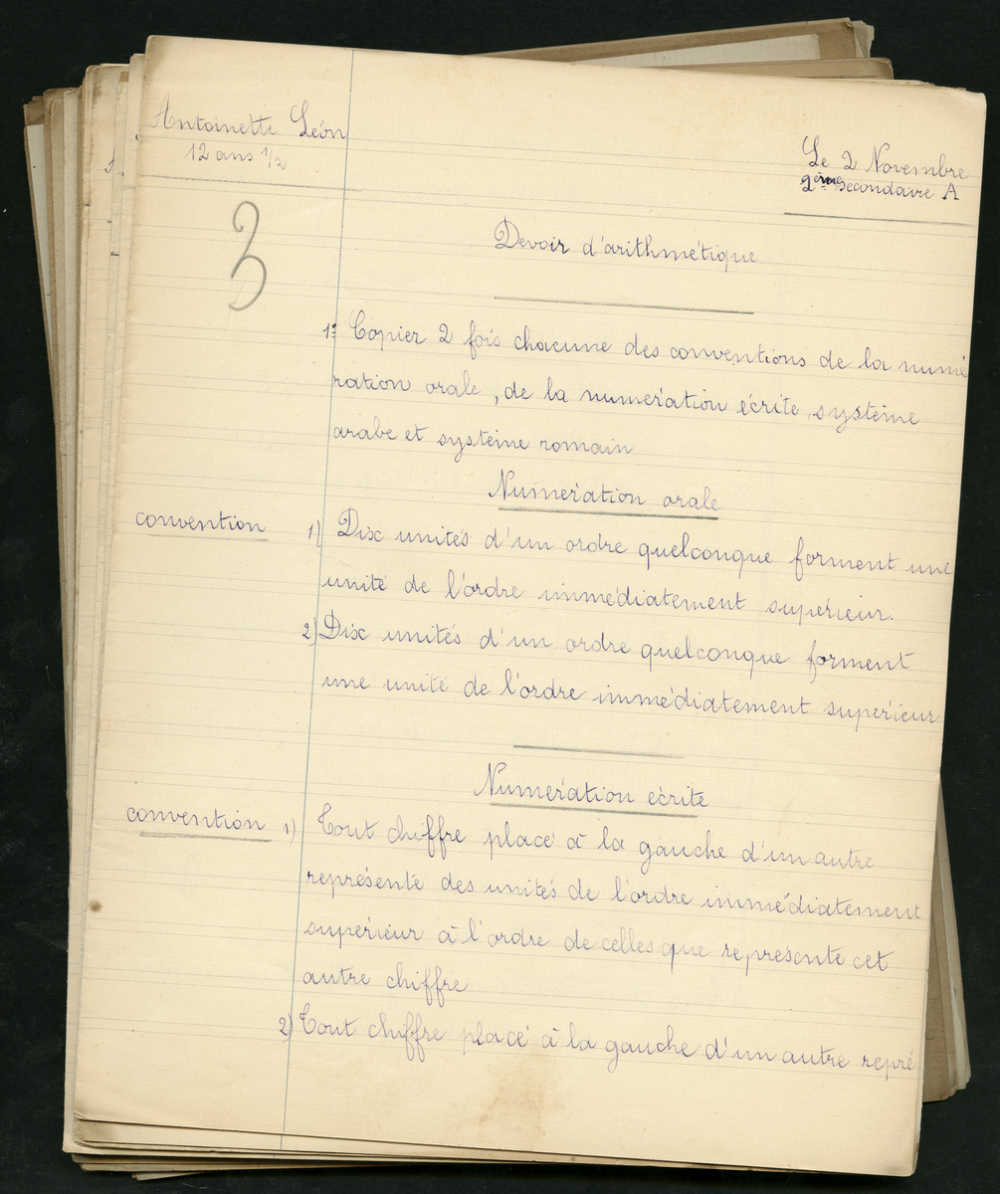 Antoinette León
12 ans 1/2
Le 2 Novembre
2ème secondaire A
3
Devoir d'arithmétique
1º Copier 2 fois chacune des conventions de la numé
ration orale, de la numération écrite, système
arabe et système romain
Numération orale
convention 1) Dix unités d'un ordre quelconque forment une
unité de l'ordre immédiatement supérieur.
2) Dix unités d'un ordre quelconque forment
une unité de l'ordre immédiatement supérieur
Numération écrite
convention 1) Tout chiffre placé à la gauche d'un autre
représente des unités de l'ordre immédiatement
supérieur à l'ordre de celles que représente cet
autre chiffre
2) Tout chiffre placé à la gauche d'un autre repré